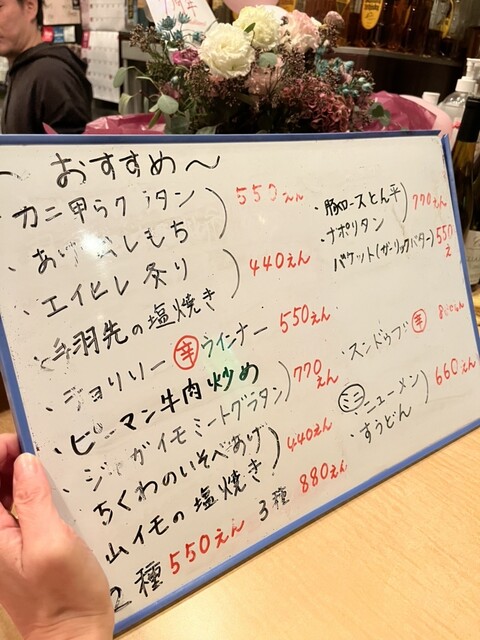 おすすめ〜
カニ甲らグラタン 550えん
あげ だしもち
エイヒレ炙り 440えん
手羽先の塩焼き
ジョリリー 辛 ウインナー 550えん
ピーマン牛肉炒め 770えん
ジャガイモミートグラタン
ちくわのいそべあげ 440えん
山イモの塩焼き
2種 550えん 3種 880えん
・豚ロースとん平 770えん
・ナポリタン
バケット(ガーリックバター) 550え
・スンドゥブ 辛
・ミニ ニューメン 660えん
・すうどん